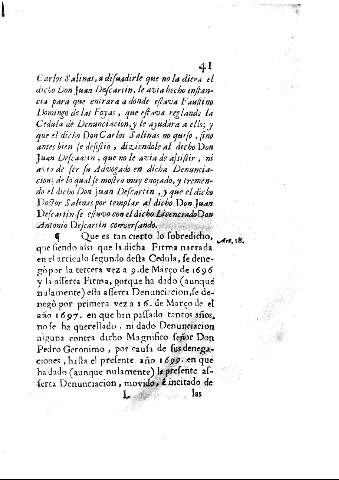 41
Carlos Salinas, a desuadirle que no la diera el
dicho Don Juan Descartin, le avia hecho instan-
cia para que entrara a donde estava Faustino
Domingo de las Foyas, que estava reglando la
Cedula de Denunciacion, y le ayudara a ello; y
que el dicho Don Carlos Salinas no quiso, sino
antes bien se desistio, diziendole al dicho Don
Juan Descartin, que no le avia de assistir, ni
avia de ser su Advogado en dicha Denuncia-
cion; de lo qual se mostro muy enojado, y tremen-
do el dicho Don Juan Descartin, y que el dicho
Doctor Salinas por templar al dicho Don Juan
Descartin se estuvo con el dicho Licenciado Don
Antonio Descartin conversando.
¶ Que es tan cierto lo sobredicho,
que siendo assi que la dicha Firma narrada
en el articulo segundo desta Cedula, se dene-
gò por la tercera vez a 9. de Março de 1696
y la asserta Firma, porque ha dado (aunque
nulamente) esta asserta Denunciacion, se de-
negò por primera vez a 16. de Março de el
año 1697. en que han passado tantos años,
no se ha querellado, ni dado Denunciacion
niguna contra dicho Magnifico señor Don
Pedro Geronimo, por causa de sus denega-
ciones, hasta el presente año 1699. en que
ha dado (aunque nulamente) la presente as-
serta Denunciacion, movido, è incitado de
L las
Art. 18.